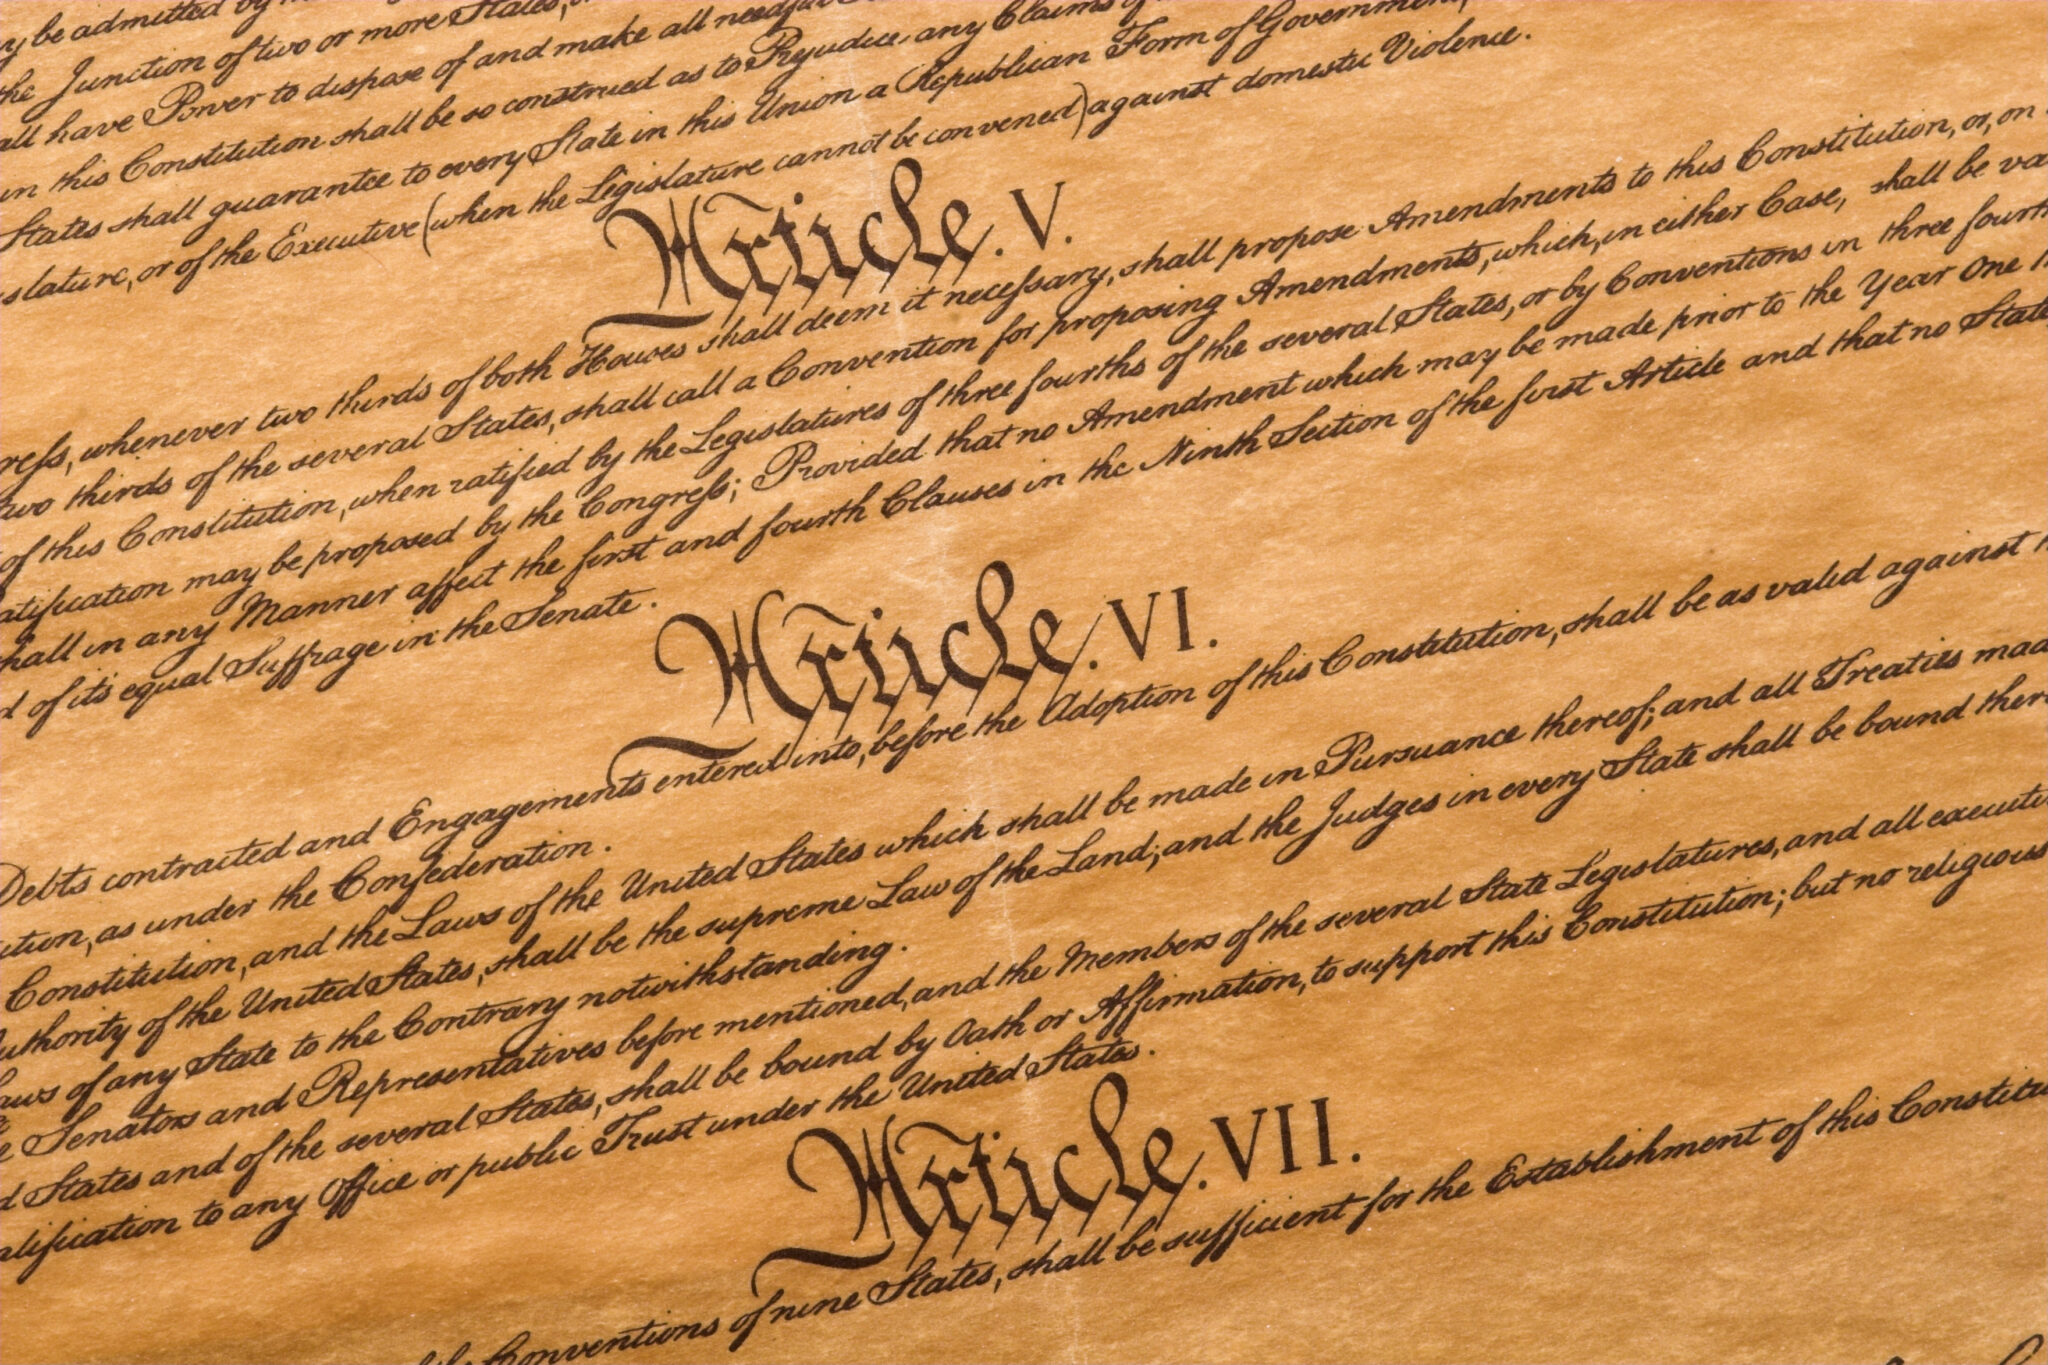 be admitted by
the Junction of two or more States,
all have Power to dispose of and make all needful
in this Constitution shall be so construed as to Prejudice any Claims of
States shall guarantee to every State in this Union a Republican Form of Government,
slature, or of the Executive (when the Legislature cannot be convened) against domestic Violence.
Article. V.
ress, whenever two thirds of both Houses shall deem it necessary, shall propose Amendments to this Constitution, or, on
two thirds of the several States, shall call a Convention for proposing Amendments, which, in either Case, shall be va
of this Constitution, when ratified by the Legislatures of three fourths of the several States, or by Conventions in three fourth
atification may be proposed by the Congress; Provided that no Amendment which may be made prior to the Year One
hall in any Manner affect the first and fourth Clauses in the Ninth Section of the first Article and that no State
d of it's equal Suffrage in the Senate.
Article. VI.
Debts contracted and Engagements entered into, before the Adoption of this Constitution, shall be as valid against
ution, as under the Confederation.
Constitution, and the Laws of the United States which shall be made in Pursuance thereof; and all Treaties mad
uthority of the United States, shall be the supreme Law of the Land; and the Judges in every State shall be bound there
aws of any State to the Contrary notwithstanding.
e Senators and Representatives before mentioned, and the Members of the several State Legislatures, and all executi
d States and of the several States, shall be bound by Oath or Affirmation, to support this Constitution; but no religious
alification to any Office or public Trust under the United States.
Article. VII.
Conventions of nine States, shall be sufficient for the Establishment of this Constitu